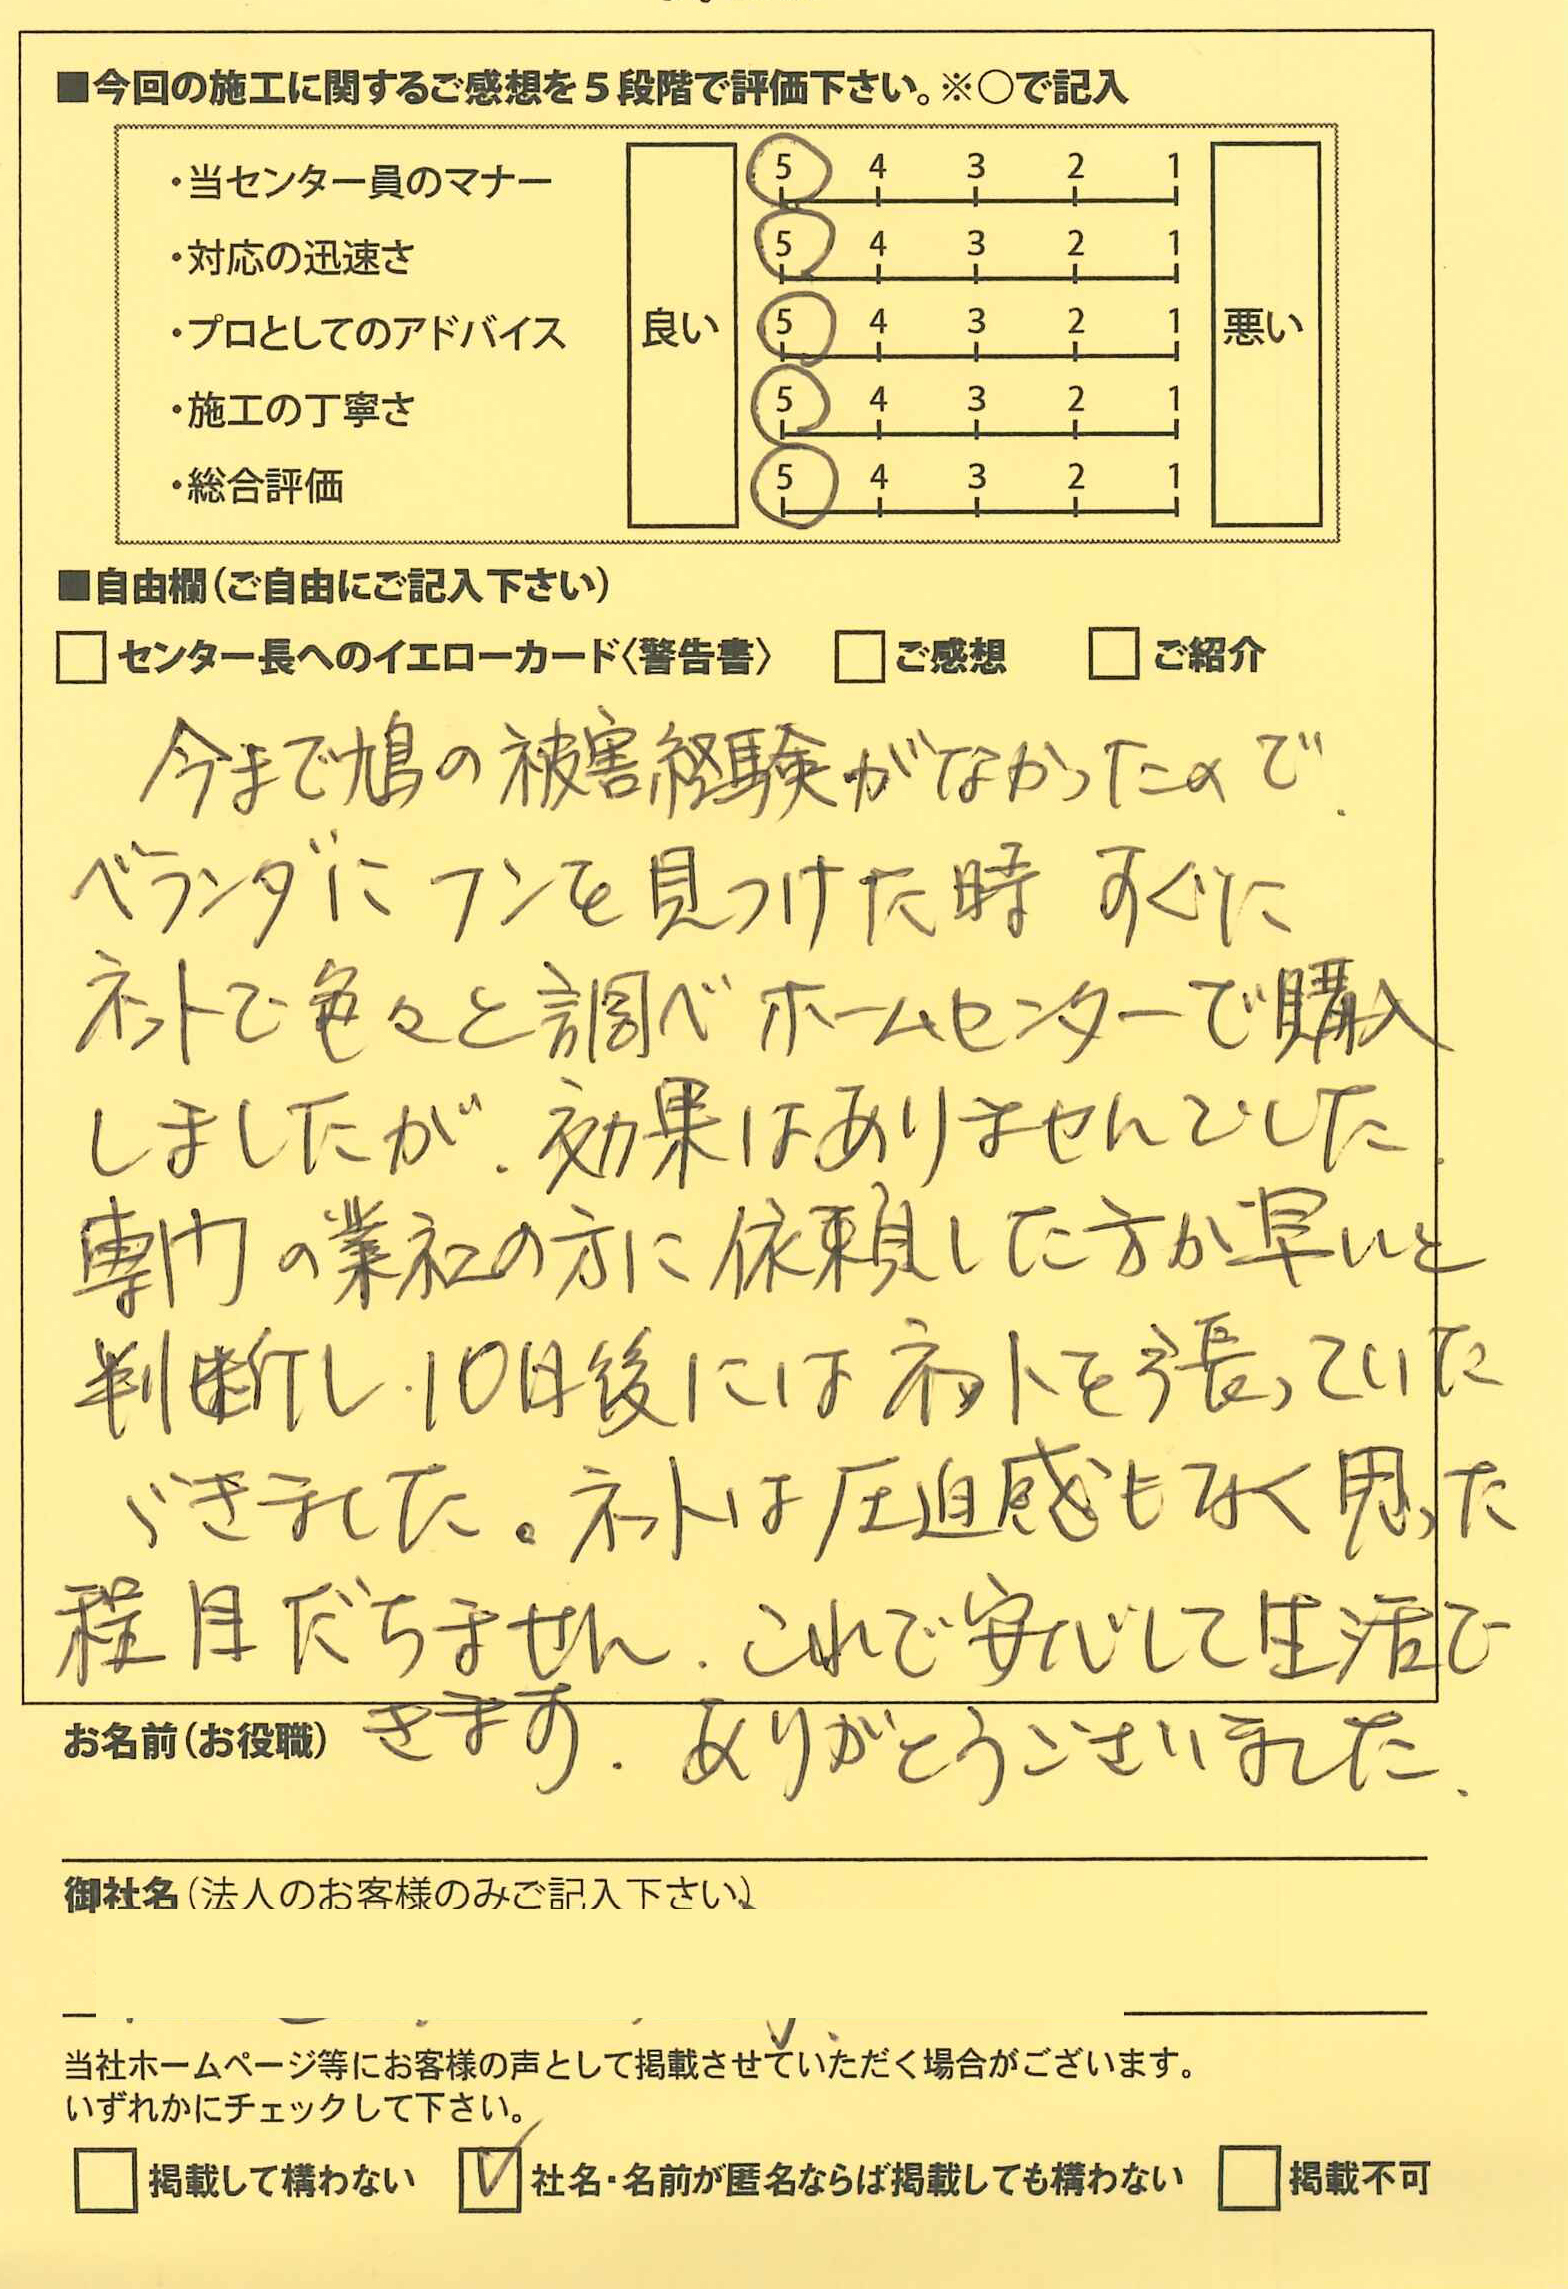 ■今回の施工に関するご感想を5段階で評価下さい。※○で記入
・当センター員のマナー 5 4 3 2 1
・対応の迅速さ 5 4 3 2 1
・プロとしてのアドバイス 良い 5 4 3 2 1 悪い
・施工の丁寧さ 5 4 3 2 1
・総合評価 5 4 3 2 1
■自由欄(ご自由にご記入下さい)
センター長へのイエローカード〈警告書〉 ご感想 ご紹介
今まで鳩の被害経験がなかったので、
ベランダにフンを見つけた時 すぐに
ネットで色々と調べホームセンターで購入
しましたが、効果はありませんでした。
専門の業社の方に依頼した方が早いと
判断し、10日後にはネットを張っていた
だきました。ネットは圧迫感もなく思った
程目だちません。これで安心して生活で
きます。ありがとうございました。
お名前(お役職)
御社名(法人のお客様のみご記入下さい)
当社ホームページ等にお客様の声として掲載させていただく場合がございます。
いずれかにチェックして下さい。
掲載して構わない 社名・名前が匿名ならば掲載しても構わない 掲載不可